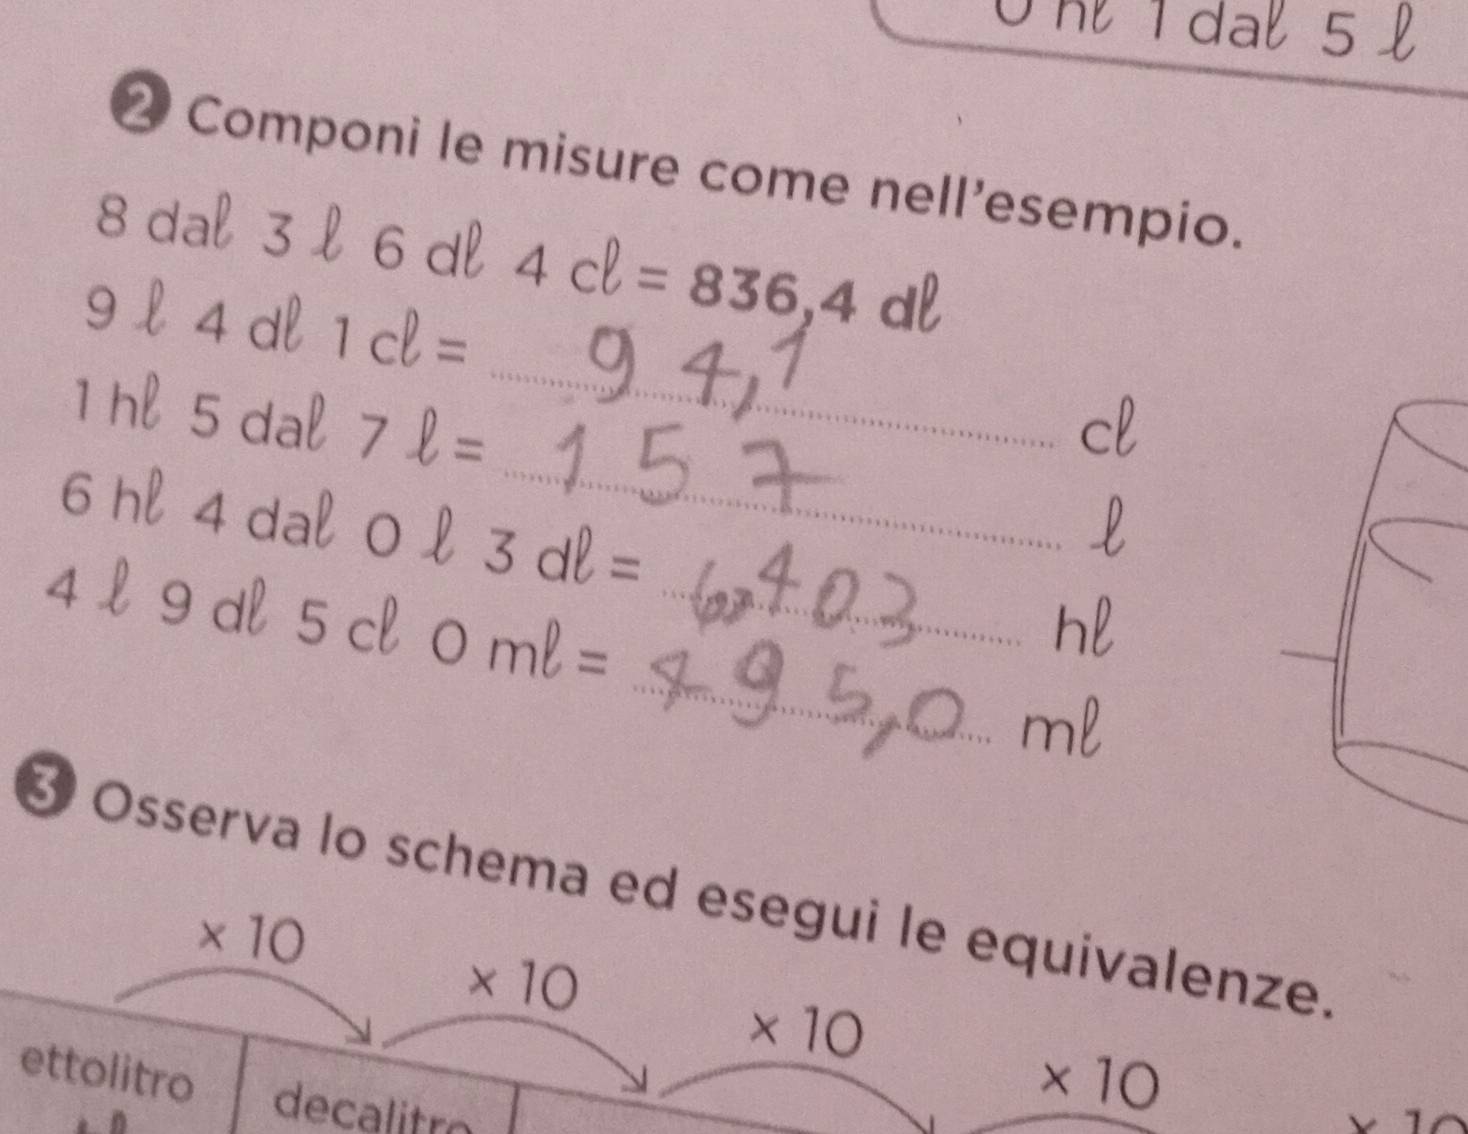 0 hl 1 dal 5 l
2 Componi le misure come nell'esempio.
8 dal 3 l 6 dl 4 cl = 836,4 dl
9 l 4 dl 1 cl = 94,1 cl
1 hl 5 dal 7 l = 157 l
6 hl 4 dal 0 l 3 dl = 6,403 hl
4 l 9 dl 5 cl 0 ml = 495,0 ml
3 Osserva lo schema ed esegui le equivalenze.
× 10 × 10 × 10 × 10 × 10
ettolitro decalitro